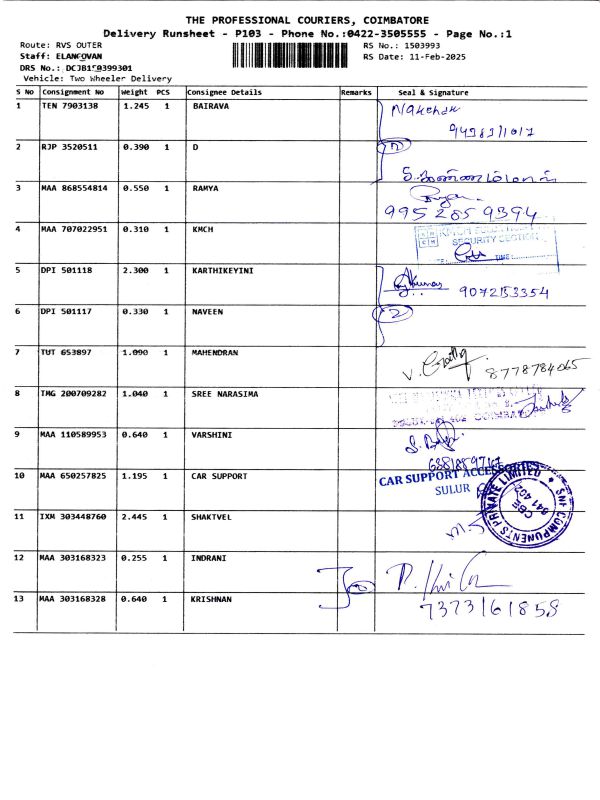 THE PROFESSIONAL COURIERS, COIMBATORE
Delivery Runsheet - P103 - Phone No.:0422-3505555 - Page No.:1
Route: RVS OUTER RS No.: 1503993
Staff: ELANGOVAN RS Date: 11-Feb-2025
DRS No.:
Vehicle: Two Wheeler Delivery
S No Consignment No Weight PCS Consignee Details Remarks Seal & Signature
1 TEN 7903138 1.245 1 BAIRAVA
2 RJP 3520511 0.390 1 D
3 MAA 868554814 0.550 1 RAMYA
9952859394
4 MAA 707022951 0.310 1 KMCH
SECURITY SECTION
TIME
5 DPI 501118 2.300 1 KARTHIKEYINI
6 DPI 501117 0.330 1 NAVEEN
2
7 TUT 653897 1.090 1 MAHENDRAN
8778784065
8 TMG 200709282 1.040 1 SREE NARASIMA
9 MAA 110589953 0.640 1 VARSHINI
10 MAA 650257825 1.195 1 CAR SUPPORT
CAR SUPPORT ACCESSORIES
SULUR
11 IXM 303448760 2.445 1 SHAKTVEL
SNF COMPONENTS PRIVATE LIMITED
CBE
641 402
12 MAA 303168323 0.255 1 INDRANI
13 MAA 303168328 0.640 1 KRISHNAN
7373161858